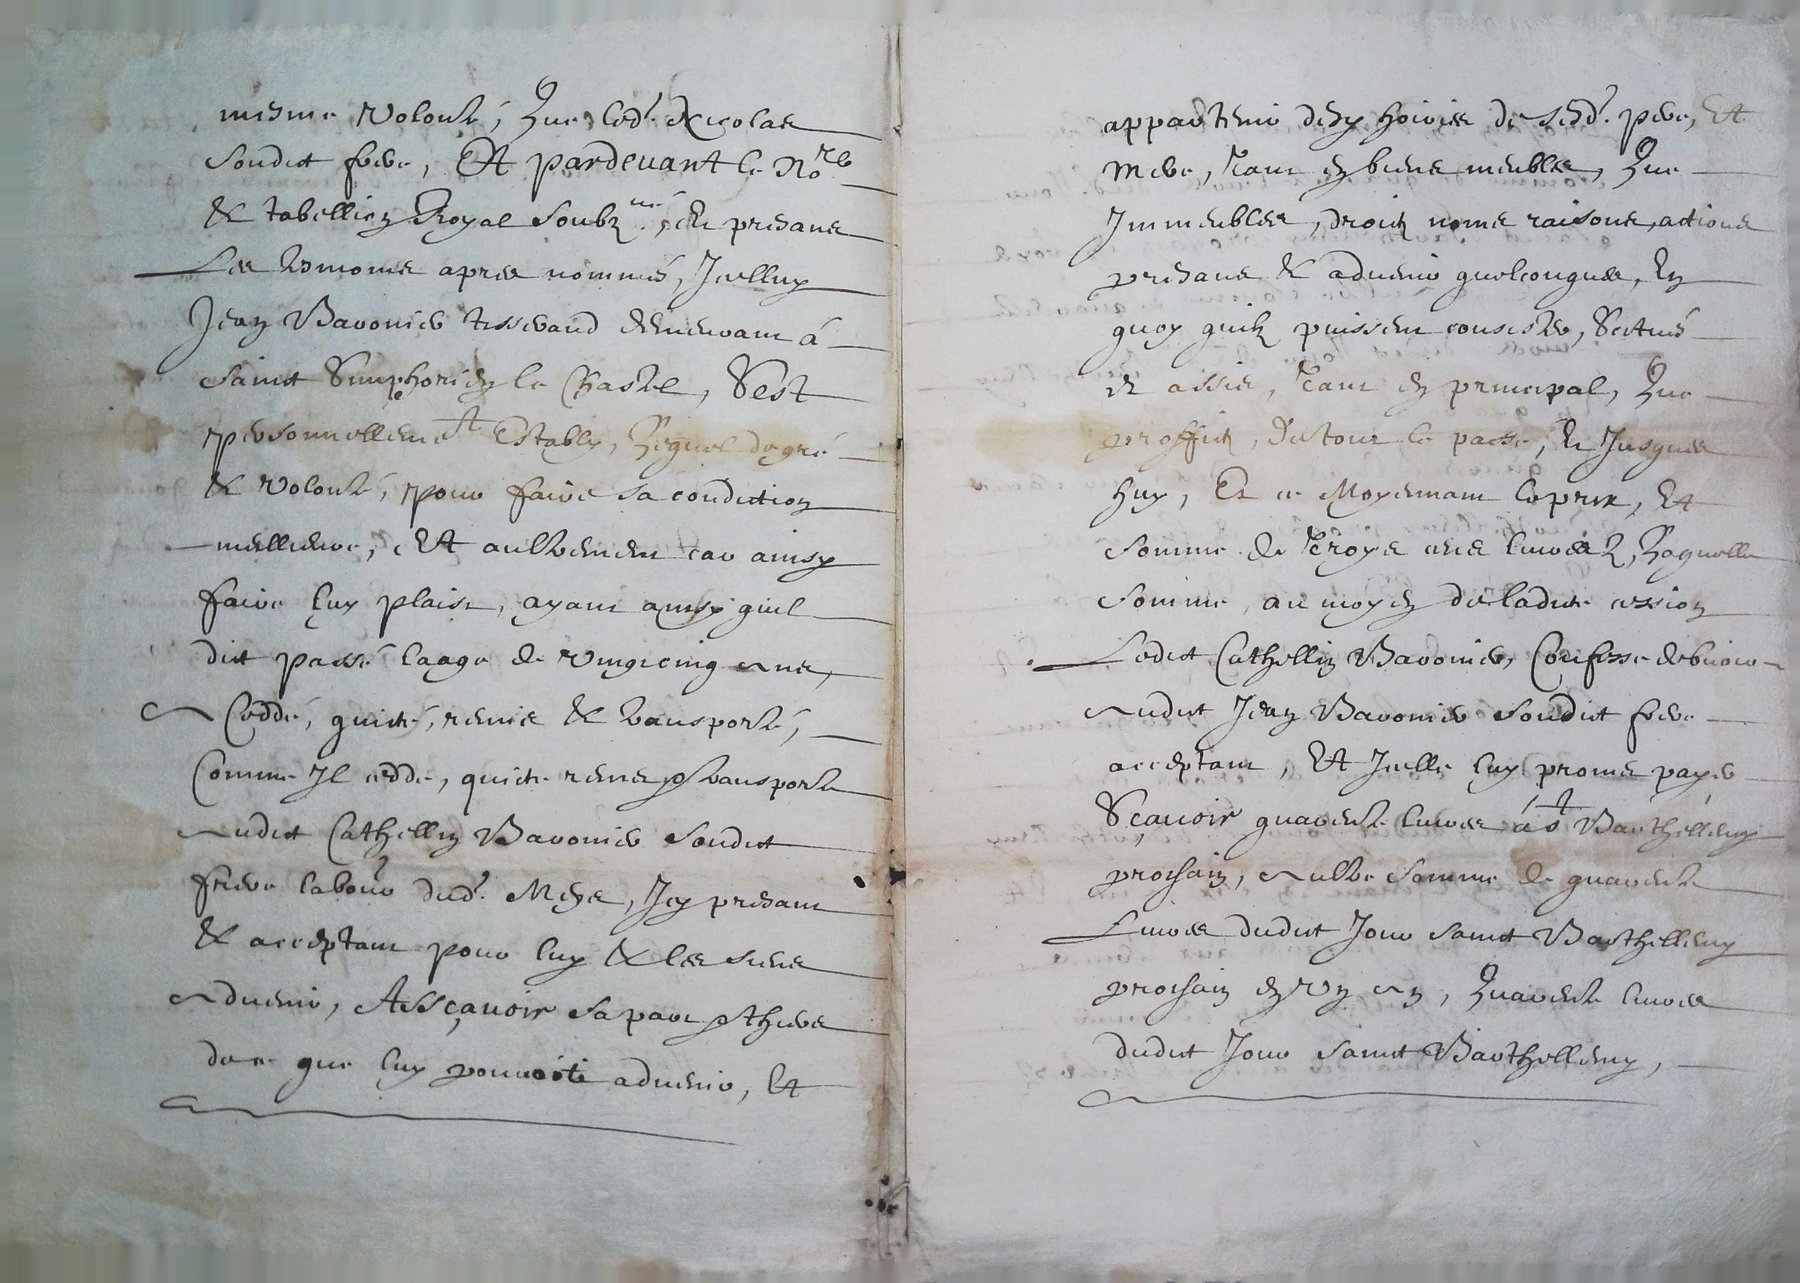 mesme volonté, Que led.t Nicolas
sondit frere, Et pardevant le No.re
& tabellion Royal soubz.né, en presans
Les tesmoins apres nommés, Icelluy
Jean Baronier tisserand demeurant á
Sainct Simphorien le Chastel, S'est
personnellemet Estably, Lequel de gré
& volonté, pour faire sa condiction
meilleure, Et aultrement car ainsy
faire luy plaist, ayant ainsy quil
dict passé laage de vingt cinq ans,
Ceddé, quicté, remis & transporté,
Comme Il cedde, quicte remet & transporte
audict Cathellin Baronier sondict
frere labour.r dud.t Meys, Icy present
& acceptant pour luy & les siens
advenir, Assçavoir sa part & thiers
de ce que luy pourroit advenir, Et
appartenir desd. hoiries de sesd.t pere, Et
Mere, Tant en biens meubles, Que
Immeubles, droictz noms raisons, actions
presans & advenir quelconques, En
quoy quilz puissent consister, Scitués
et assis, Tant en principal, Que
proffictz, De tout le passé, et Jusques
huy, Et ce Moyennant le prix, Et
Somme de Troys cens livres, Laquelle
Somme, au moyen de ladicte cession
Ledict Cathellin Baronier, Confesse debvoir
audict Jean Baronier sondict frere
acceptant, Et Icelle luy promet payer
Sçavoir quarente livres á st Barthellemy
prochain, aultre somme de quarente
Livres dudict Jour sainct Barthellemy
prochain en vng an, Quarente livres
dudict Jour sainct Barthellemy,